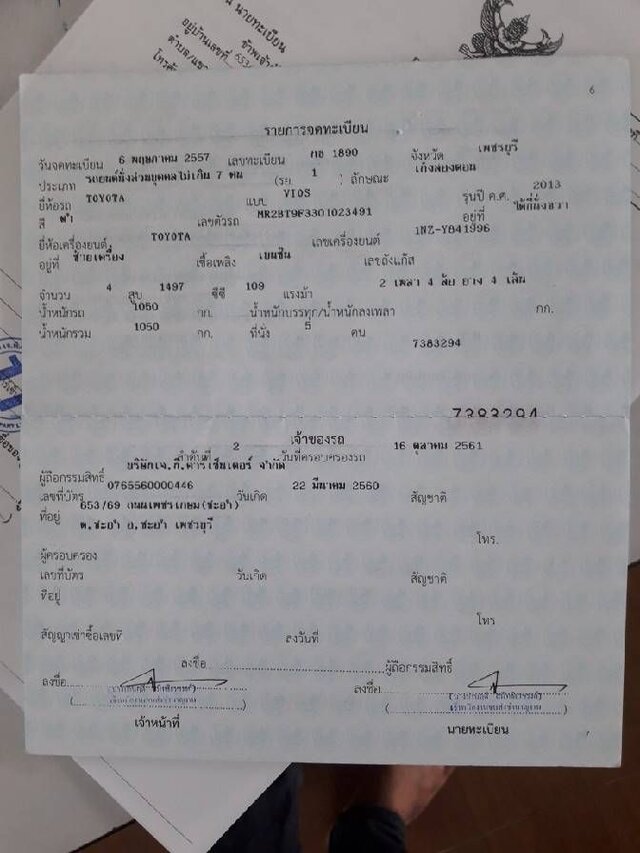 นายทะเบียน
อยู่บ้านเลขที่ 653
6
รายการจดทะเบียน
วันจดทะเบียน 6 พฤษภาคม 2557 เลขทะเบียน กธ 1890 จังหวัด เพชรบุรี
ประเภท รถยนต์นั่งส่วนบุคคลไม่เกิน 7 คน (รย. 1 ) ลักษณะ เก๋งสองตอน
ยี่ห้อรถ TOYOTA แบบ VIOS รุ่นปี ค.ศ. 2013
สี ดำ เลขตัวรถ MR2BT9F3301023491 อยู่ที่ ใต้ที่นั่งขวา
ยี่ห้อเครื่องยนต์ TOYOTA เลขเครื่องยนต์ 1NZ-Y841996
อยู่ที่ ซ้ายเครื่อง เชื้อเพลิง เบนซิน เลขถังแก๊ส
จำนวน 4 สูบ 1497 ซีซี 109 แรงม้า 2 เพลา 4 ล้อ ยาง 4 เส้น
น้ำหนักรถ 1050 กก. น้ำหนักบรรทุก/น้ำหนักลงเพลา กก.
น้ำหนักรวม 1050 กก. ที่นั่ง 5 คน
7383294
7383294
เจ้าของรถ
ลำดับที่ 2 วันที่ครอบครองรถ 16 ตุลาคม 2561
ผู้ถือกรรมสิทธิ์ บริษัทเจ.ที.คาร์เซ็นเตอร์ จำกัด
เลขที่บัตร 0765560000446 วันเกิด 22 มีนาคม 2560 สัญชาติ
ที่อยู่ 653/69 ถนนเพชรเกษม(ชะอำ)
ต.ชะอำ อ.ชะอำ เพชรบุรี
โทร.
ผู้ครอบครอง
เลขที่บัตร วันเกิด สัญชาติ
ที่อยู่
โทร
สัญญาเช่าซื้อเลขที่ ลงวันที่
ลงชื่อ ผู้ถือกรรมสิทธิ์
ลงชื่อ ลงชื่อ
เจ้าหน้าที่ นายทะเบียน